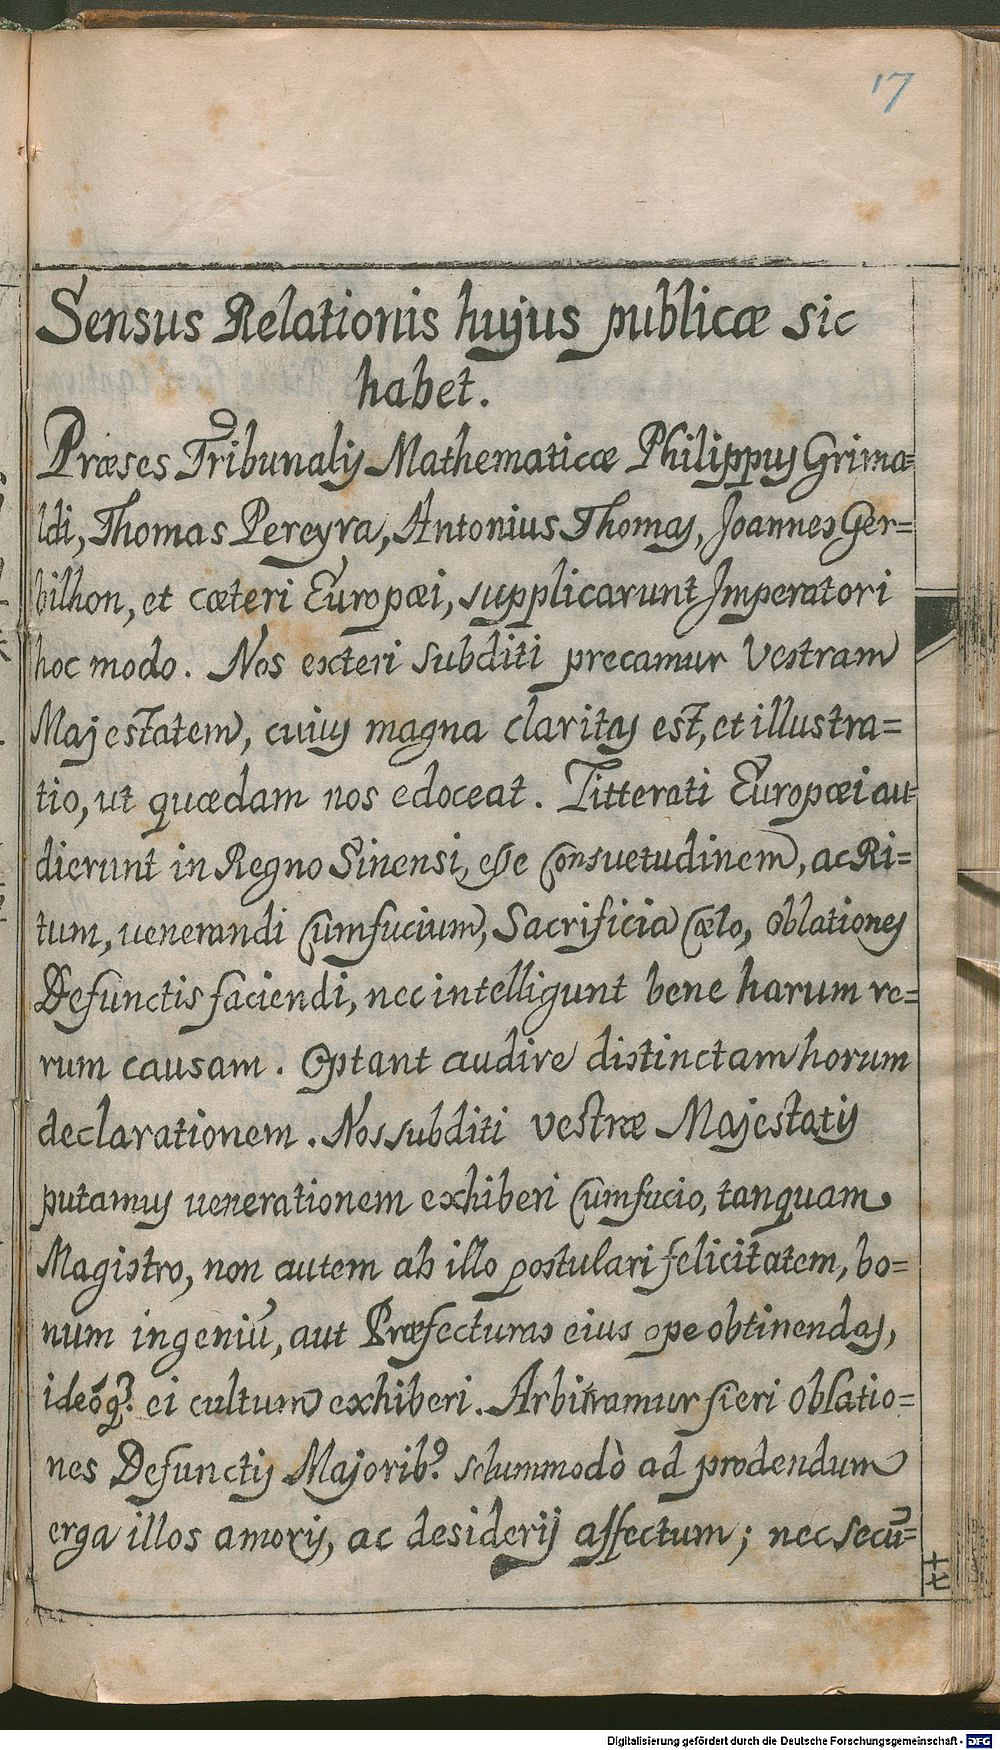 17
Sensus Relationis hujus publicæ sic
habet.
Præses Tribunalis Mathematicæ Philippus Grima=
ldi, Thomas Pereyra, Antonius Thomas, Joannes Ger=
bilhon, et cæteri Europæi, supplicarunt Imperatori
hoc modo. Nos exteri subditi precamur Vestram
Majestatem, cuius magna claritas est, et illustra=
tio, ut quædam nos edoceat. Litterati Europæi au=
dierunt in Regno Sinensi, esse Consuetudinem, ac Ri=
tum, uenerandi Cumfucium, Sacrificia Cœlo, Oblationes
Defunctis faciendi, nec intelligunt bene harum re=
rum causam. Optant audire distinctam horum
declarationem. Nos subditi vestræ Majestatis
putamus uenerationem exhiberi Cumfucio, tanquam
Magistro, non autem ab illo postulari felicitatem, bo=
num ingeniū, aut Præfecturas eius ope obtinendas,
ideóq; ei cultum exhiberi. Arbitramur fieri Oblatio=
nes Defunctis Majorib9. solummodò ad prodendum
erga illos amoris, ac desiderij affectum; nec secū=
十七
Digitalisierung gefördert durch die Deutsche Forschungsgemeinschaft - DFG